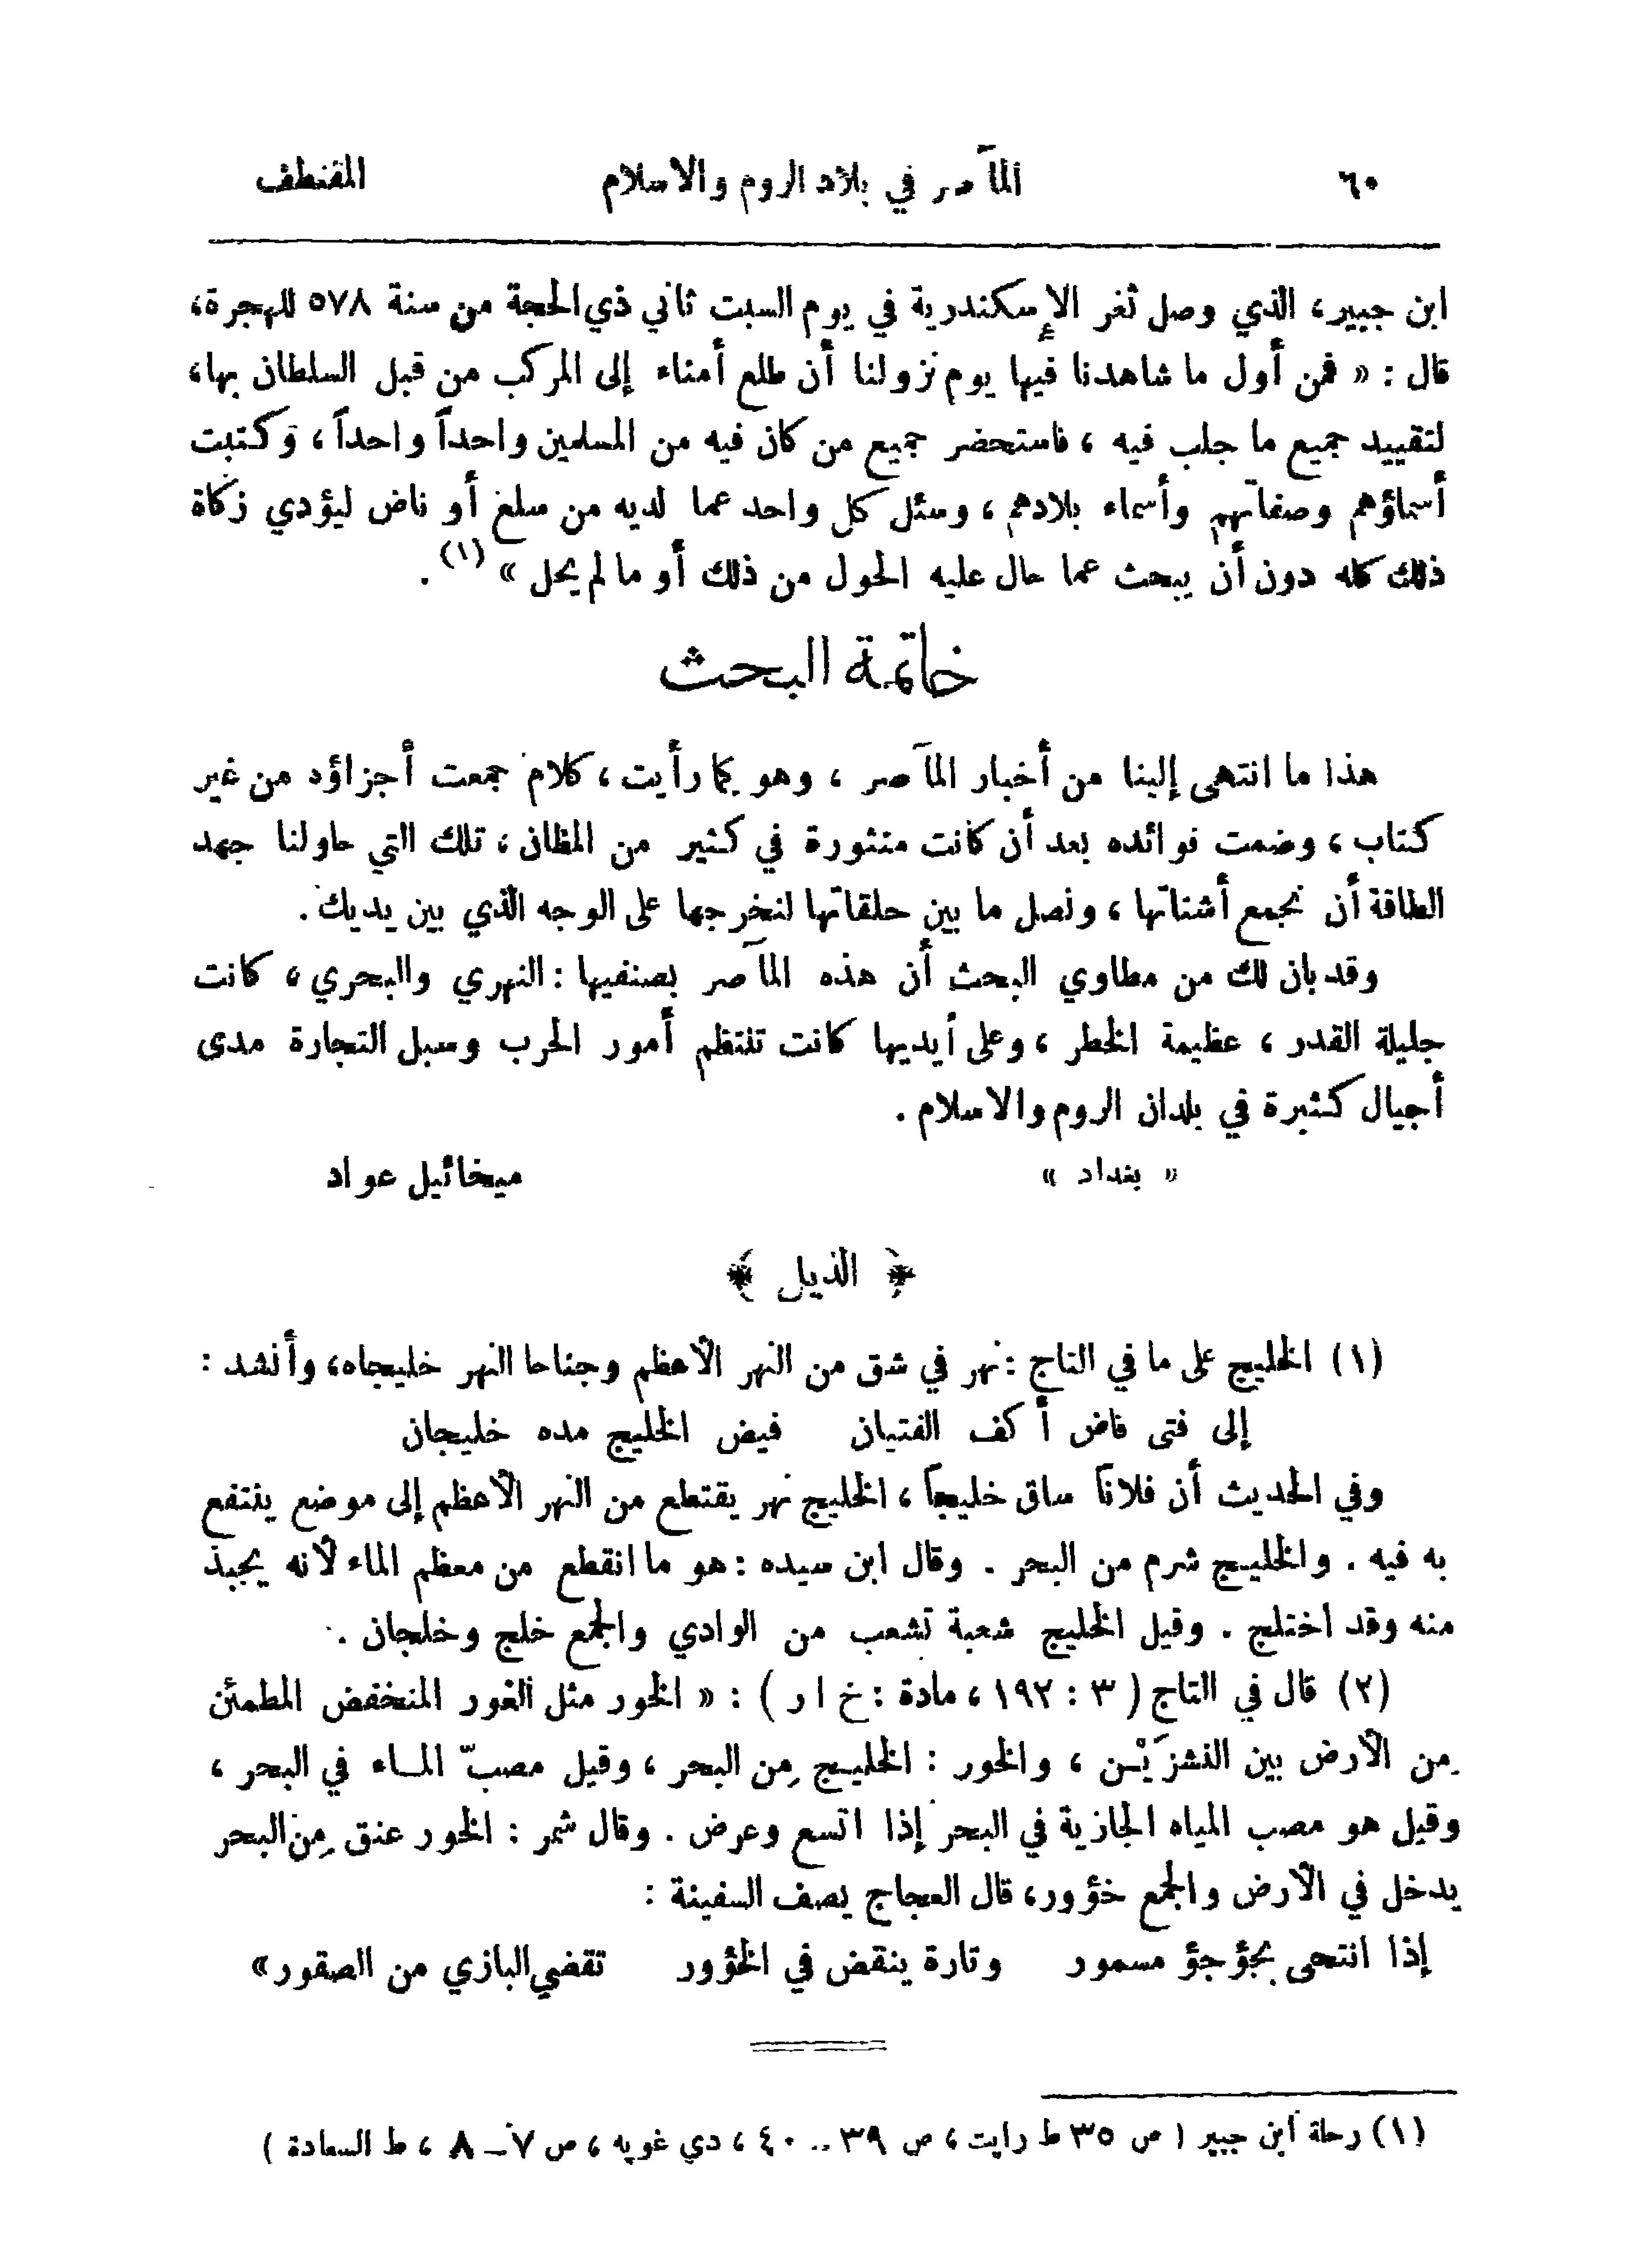 ٦٠ المآصر في بلاد الروم والاسلام المقتطف
ابن جبير، الذي وصل ثغر الإسكندرية في يوم السبت ثاني ذي الحجة من سنة ٥٧٨ للهجرة،
قال : « فمن أول ما شاهدنا فيها يوم نزولنا أن طلع أمناء إلى المركب من قبل السلطان بها،
لتقييد جميع ما جلب فيه ، فاستحضر جميع من كان فيه من المسلمين واحداً واحداً ، وكتبت
أسماؤهم وصفاتهم وأسماء بلادهم ، وسئل كل واحد عما لديه من سلع أو ناض ليؤدي زكاة
ذلك كله دون أن يبحث عما حال عليه الحول من ذلك أو ما لم يحل » (١) .
خاتمة البحث
هذا ما انتهى إلينا من أخبار المآصر ، وهو كما رأيت ، كلام جمعت أجزاؤه من غير
كتاب ، وضمت فوائده بعد أن كانت منثورة في كثير من المظان ، تلك التي حاولنا جهد
الطاقة أن نجمع أشتاتها ، ونصل ما بين حلقاتها لنخرجها على الوجه الذي بين يديك .
وقد بان لك من مطاوي البحث أن هذه المآصر بصنفيها : النهري والبحري ، كانت
جليلة القدر ، عظيمة الخطر ، وعلى أيديها كانت تنتظم أمور الحرب وسبل التجارة مدى
أجيال كثيرة في بلدان الروم والاسلام .
« بغداد » ميخائيل عواد
﴿ الذيل ﴾
(١) الخليج على ما في التاج : نهر في شق من النهر الأعظم وجناحا النهر خليجاه، وأنشد :
إلى فتى فاض أكف الفتيان فيض الخليج مده خليجان
وفي الحديث أن فلاناً ساق خليجاً ، الخليج نهر يقتطع من النهر الأعظم إلى موضع ينتفع
به فيه . والخليج شرم من البحر . وقال ابن سيده : هو ما انقطع من معظم الماء لأنه يجبذ
منه وقد اختلج . وقيل الخليج شعبة تشعب من الوادي والجمع خلج وخلجان .
(٢) قال في التاج ( ٣ : ١٩٢ ، مادة : خ ا ر ) : « الخور مثل الغور المنخفض المطمئن
مِن الأرض بين النشزَيْن ، والخور : الخليج مِن البحر ، وقيل مصبّ الماء في البحر ،
وقيل هو مصب المياه الجازية في البحر إذا اتسع وعرض . وقال شمر : الخور عنق مِن البحر
يدخل في الأرض والجمع خؤور، قال العجاج يصف السفينة :
إذا انتحى بجؤجؤ مسمور وتارة ينقض في الخؤور تقضي البازي من الصقور »
(١) رحلة ابن جبير ( ص ٣٥ ط رايت ، ص ٣٩ .. ٤٠ ، دي غويه ، ص ٧ـ ٨ ، ط السعادة )